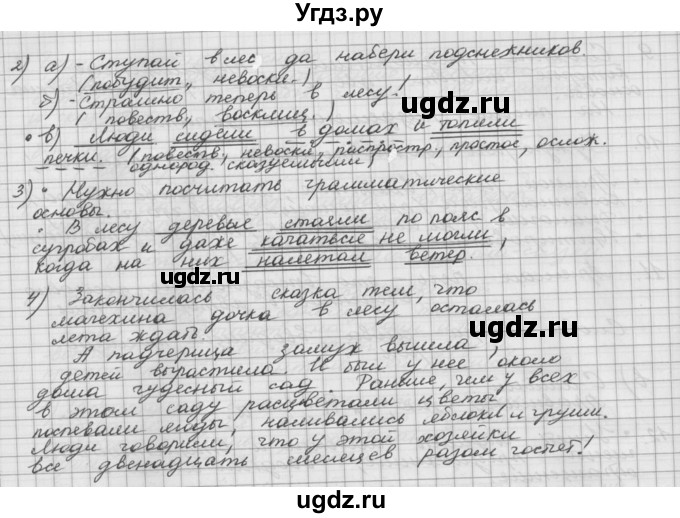 Угдз.ру
2) а) - Ступай в лес да набери подснежников.
(побудит., невоскл.)
б) - Страшно теперь в лесу!
(повеств., восклиц.)
• в) Люди сидели в домах и топили
печки. (повеств., невоскл., распростр., простое, ослож.
однород. сказуемыми)
3) • Нужно посчитать грамматические
основы.
• В лесу деревья стояли по пояс в
сугробах и даже качаться не могли,
когда на них налетал ветер.
4) Закончилась сказка тем, что
мачехина дочка в лесу осталась
лета ждать.
А падчерица замуж вышла,
детей вырастила. И был у нее около
дома чудесный сад. Раньше, чем у всех
в этом саду расцветали цветы,
поспевали ягоды, наливались яблоки и груши.
Люди говорили, что у этой хозяйки
все двенадцать месяцев разом гостят!
ugdz.ru
ugdz.ru
ugdz.ru
ugdz.ru
ugdz.ru
ugdz.ru
ugdz.ru